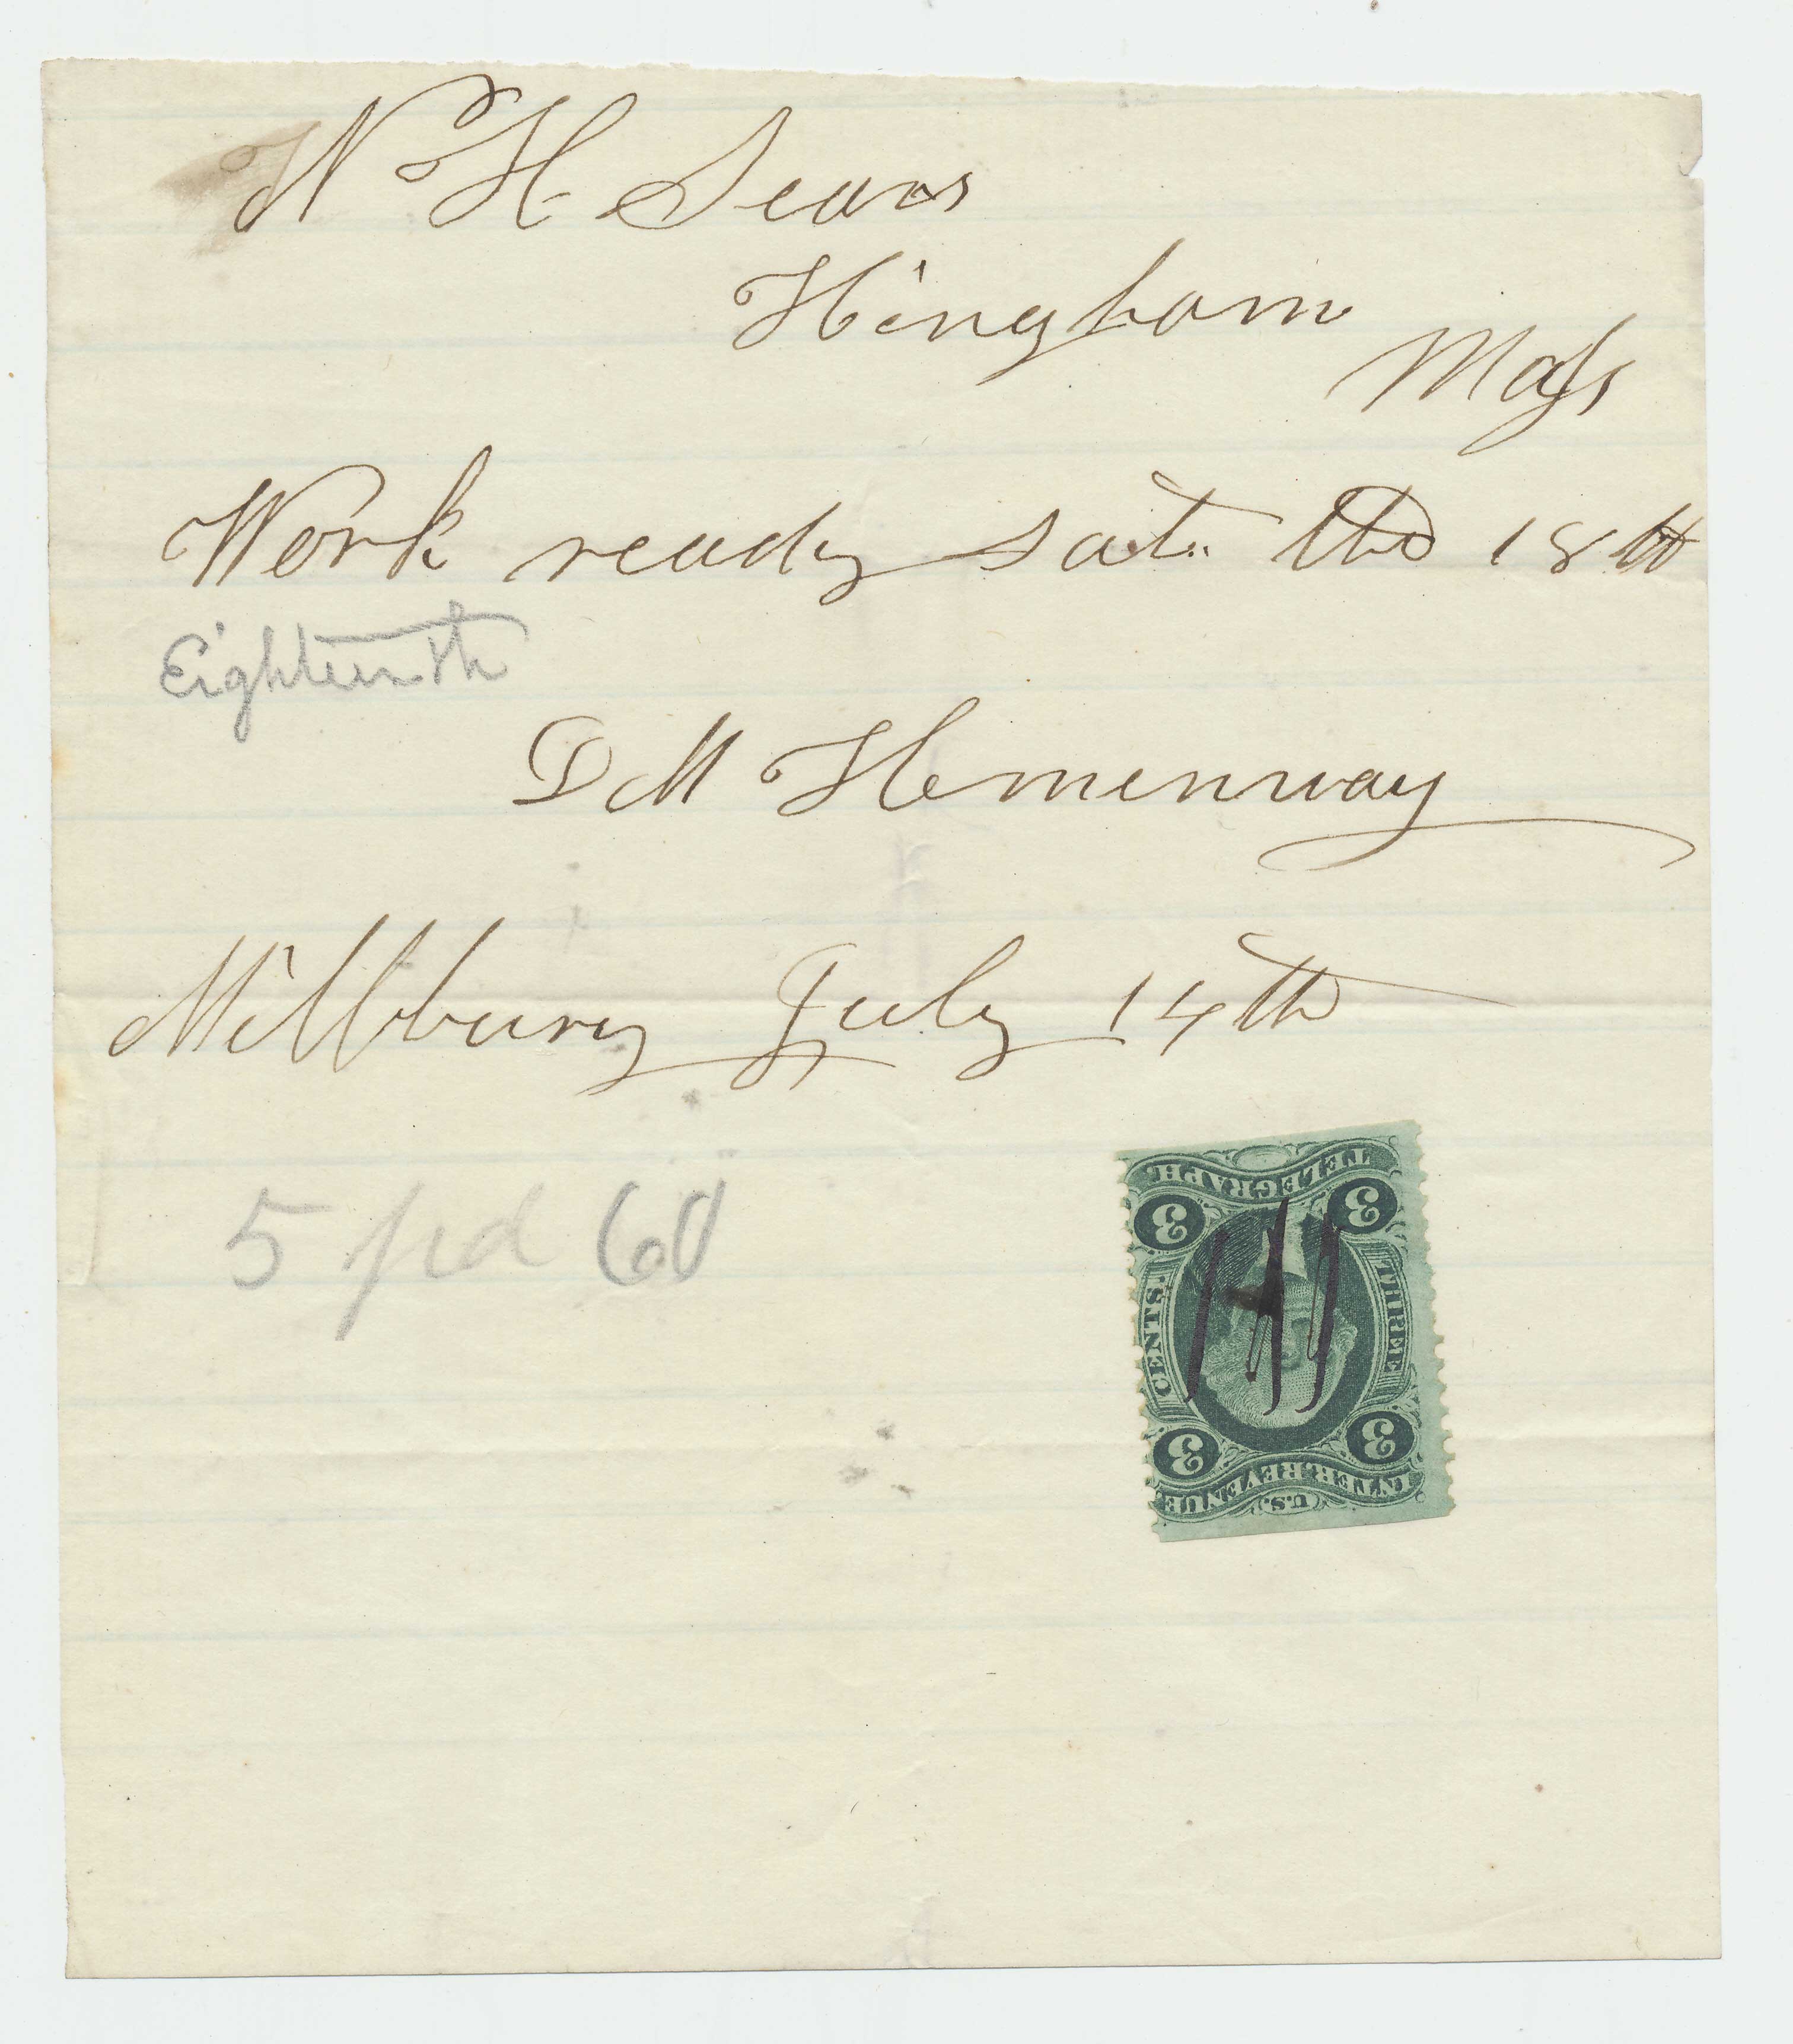 W H Sears
Hingham
Mass
Work ready Sat. the 18th
Eighteenth
D M Hemenway
Millbury July 14th
5 pd 60
TELEGRAPH.
3 3
THREE CENTS.
3 3
U.S. INTER. REVENUE